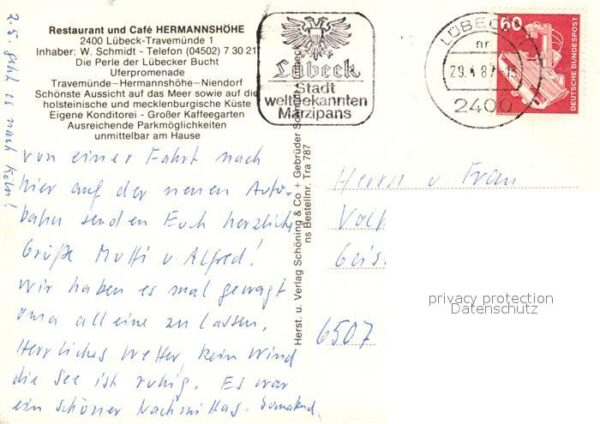 Restaurant und Café HERMANNSHÖHE
2400 Lübeck-Travemünde 1
Inhaber: W. Schmidt - Telefon (04502) 7 30 21
Die Perle der Lübecker Bucht
Uferpromenade
Travemünde–Hermannshöhe–Niendorf
Schönste Aussicht auf das Meer sowie auf die
holsteinische und mecklenburgische Küste
Eigene Konditorei - Großer Kaffeegarten
Ausreichende Parkmöglichkeiten
unmittelbar am Hause
2.5. geht es nach Köln!
von einer Fahrt nach
hier auf der neuen Auto-
bahn senden Euch herzliche
Grüße Mutti u Alfred!
Wir haben es mal gewagt
Oma alleine zu lassen.
Herrliches Wetter kein Wind
die See ist ruhig. Es war
ein schöner Nachmittag.
Herst. u. Verlag Schöning & Co + Gebrüder Schmidt Lübeck
ns Bestellnr. Tra 787
Lübeck
Stadt
weltbekannten
Marzipans
LÜBECK 1
nr
29.4.87
2400
60
DEUTSCHE BUNDESPOST
Herrn u Frau
6507
privacy protection
Datenschutz